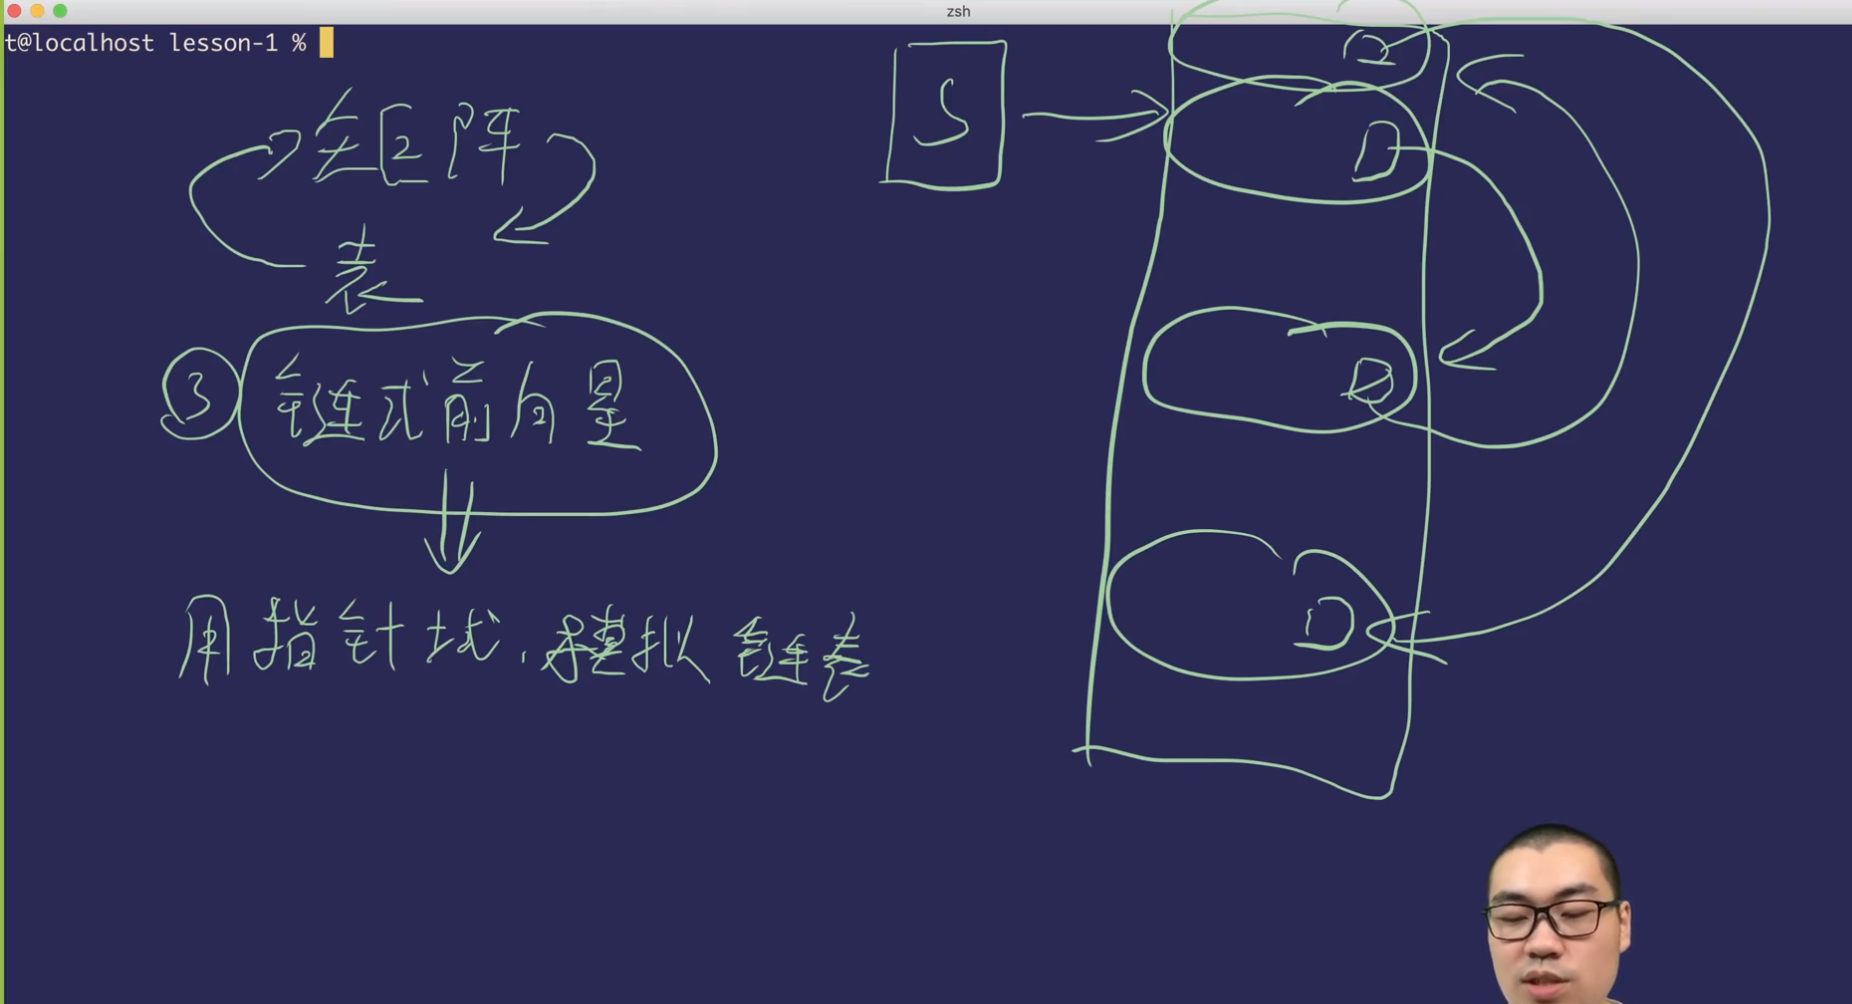 zsh
t@localhost lesson-1 %
矩阵
表
③ 链式前向星
用指针域,模拟链表
S
D
D
D
D